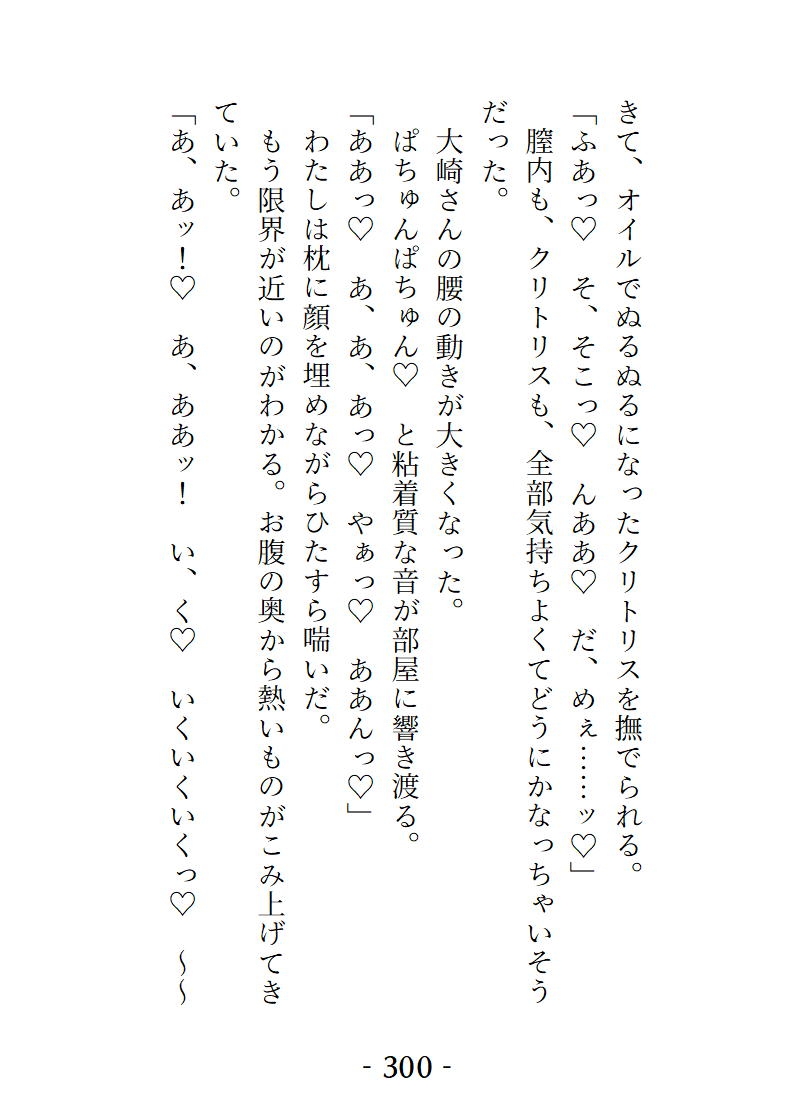 きて、オイルでぬるぬるになったクリトリスを撫でられる。
「ふあっ♡　そ、そこっ♡　んああ♡　だ、めぇ……ッ♡」
　膣内も、クリトリスも、全部気持ちよくてどうにかなっちゃいそう
だった。
　大崎さんの腰の動きが大きくなった。
　ぱちゅんぱちゅん♡　と粘着質な音が部屋に響き渡る。
「ああっ♡　あ、あ、あっ♡　やぁっ♡　ああんっ♡」
　わたしは枕に顔を埋めながらひたすら喘いだ。
　もう限界が近いのがわかる。お腹の奥から熱いものがこみ上げてき
ていた。
「あ、あッ！♡　あ、ああッ！　い、く♡　いくいくいくっ♡　～～
- 300 -